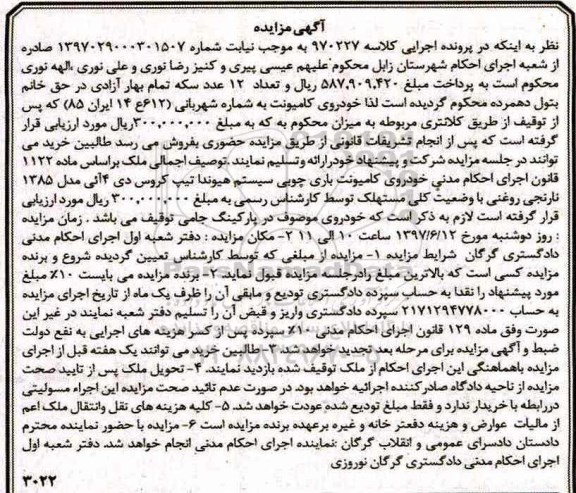 آگهی مزایده
نظر به اینکه در پرونده اجرایی کلاسه ۹۷۰۲۲۷ به موجب نیابت شماره ۱۳۹۷۰۲۹۰۰۰۳۰۱۵۰۷ صادره
از شعبه اجرای احکام شهرستان زابل محکوم علیهم عیسی پیری و کنیز رضا نوری و علی نوری ,الهه نوری
محکوم است به پرداخت مبلغ ۵۸۷,۹۰۹,۴۲۰ ریال و تعداد ۱۲ عدد سکه تمام بهار آزادی در حق خانم
بتول دهمرده محکوم گردیده است لذا خودروی کامیونت به شماره شهربانی (۶۱۲ع ۱۴ ایران ۸۵) که پس
از توقیف از طریق کلانتری مربوطه به میزان محکوم به که به مبلغ ۳۰۰,۰۰۰,۰۰۰ریال مورد ارزیابی قرار
گرفته است که پس از انجام تشریفات قانونی از طریق مزایده حضوری بفروش می رسد طالبین خرید می
توانند در جلسه مزایده شرکت و پیشنهاد خود را ارائه و تسلیم نمایند. توصیف اجمالی ملک براساس ماده ۱۱۲۲
قانون اجرای احکام مدنی خودروی کامیونت باری چوبی سیستم هیوندا تیپ کروس دی ۴آنی مدل ۱۳۸۵
نارنجی روغنی با وضعیت کلی مستهلک توسط کارشناس رسمی به مبلغ ۳۰۰,۰۰۰,۰۰۰ ریال مورد ارزیابی
قرار گرفته است لازم به ذکر است که خودروی موصوف در پارکینگ جامی توقیف می باشد . زمان مزایده
: روز دوشنبه مورخ ۱۳۹۷/۶/۱۲ ساعت ۱۰ الی ۱۱ ۲- مکان مزایده : دفتر شعبه اول اجرای احکام مدنی
دادگستری گرگان شرایط مزایده ۱- مزایده از مبلغی که توسط کارشناس تعیین گردیده شروع و برنده
مزایده کسی است که بالاترین مبلغ را در جلسه مزایده قبول نماید ۲- برنده مزایده می بایست ۱۰٪ مبلغ
مورد پیشنهاد را نقدا به حساب سپرده دادگستری تودیع و مابقی آن را ظرف یک ماه از تاریخ اجرای مزایده
به حساب ۲۱۷۱۲۹۴۷۷۸۰۰۰ سپرده دادگستری واریز و قبض آن را تسلیم دفتر شعبه نمایند در غیر این
صورت وفق ماده ۱۲۹ قانون اجرای احکام مدنی ۱۰٪ سپرده پس از کسر هزینه های اجرایی به نفع دولت
ضبط و آگهی مزایده برای مرحله بعد تجدید خواهد شد. ۳-طالبین خرید می توانند یک هفته قبل از اجرای
مزایده باهماهنگی این اجرای احکام از ملک توقیف شده بازدید نمایند. ۴- تحویل ملک پس از تایید صحت
مزایده از ناحیه دادگاه صادر کننده اجرائیه خواهد بود. در صورت عدم تائید صحت مزایده این اجراء مسولیتی
در رابطه با خریدار ندارد و فقط مبلغ تودیع شده عودت خواهد شد. ۵- کلیه هزینه های نقل وانتقال ملک اعم
از مالیات عوارض و هزینه دفعتر خانه و غیره برعهده برنده مزایده است ۶- مزایده با حضور نماینده محترم
دادستان دادسرای عمومی و انقلاب گرگان :نماینده اجرای احکام مدنی انجام خواهد شد. دفتر شعبه اول
اجرای احکام مدنی دادگستری گرگان نوروزی
۳۰۲۲